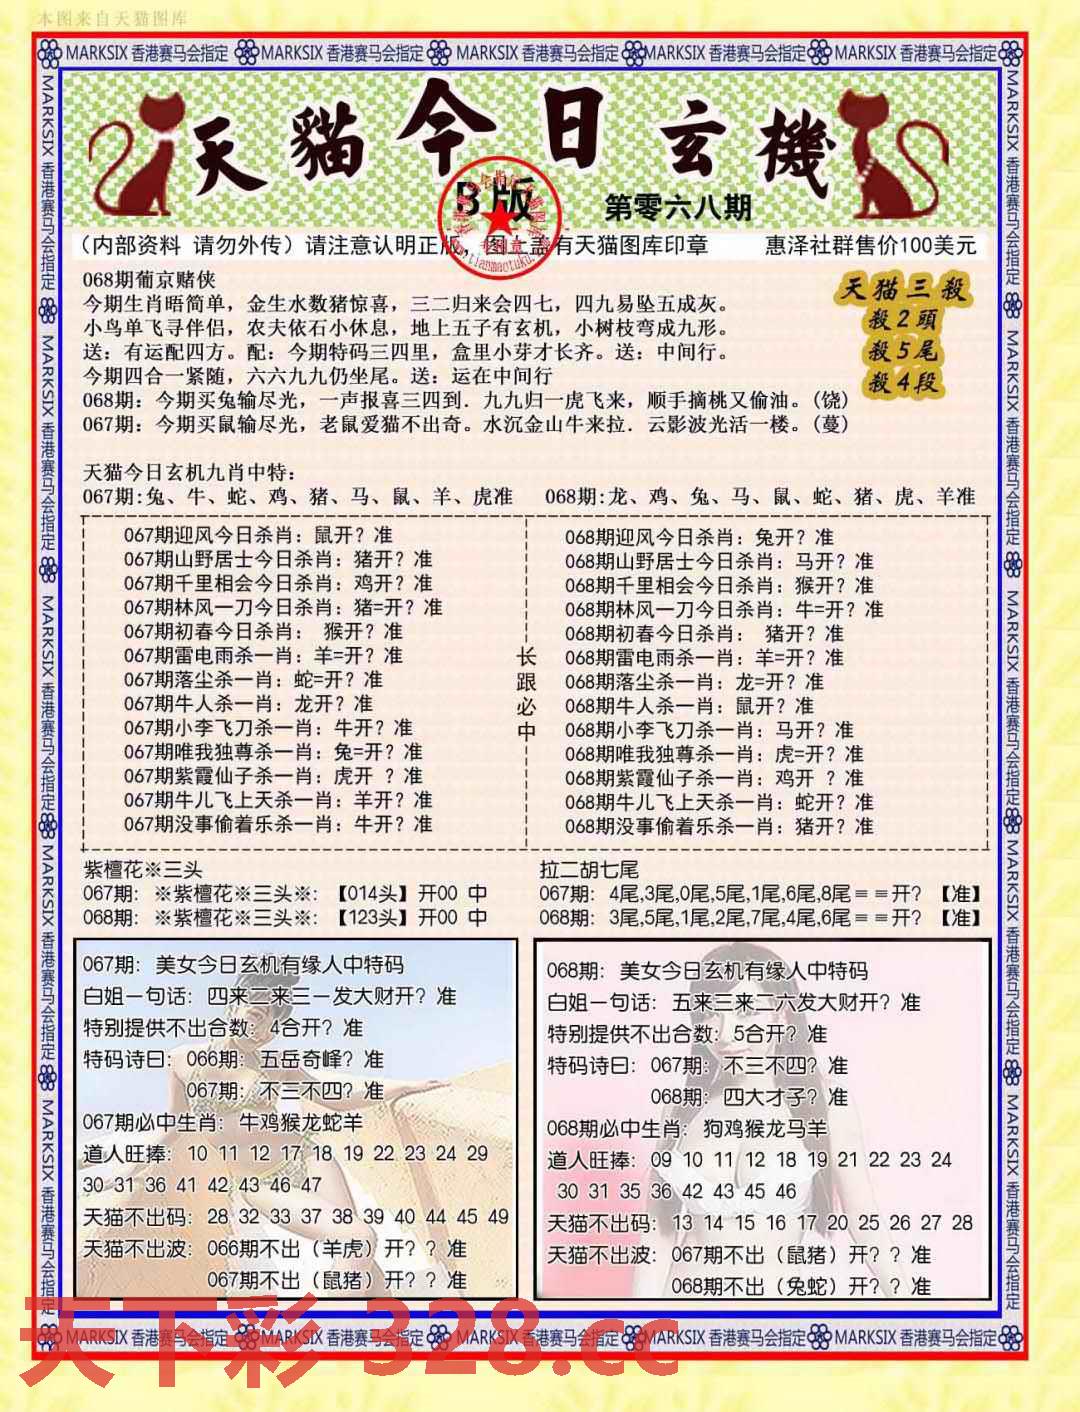 本图来自天猫图库
MARKSIX 香港赛马会指定 MARKSIX 香港赛马会指定 MARKSIX 香港赛马会指定 MARKSIX 香港赛马会指定 MARKSIX 香港赛马会指定
天貓今日玄機
B版
第零六八期
(内部资料 请勿外传) 请注意认明正版，图上盖有天猫图库印章 惠泽社群售价100美元
068期葡京赌侠
今期生肖唔简单，金生水数猪惊喜，三二归来会四七，四九易坠五成灰。
小鸟单飞寻伴侣，农夫依石小休息，地上五子有玄机，小树枝弯成九形。
送：有运配四方。配：今期特码三四里，盒里小芽才长齐。送：中间行。
今期四合一紧随，六六九九仍坐尾。送：运在中间行
天猫三殺
殺2頭
殺5尾
殺4段
068期：今期买兔输尽光，一声报喜三四到．九九归一虎飞来，顺手摘桃又偷油。(饶)
067期：今期买鼠输尽光，老鼠爱猫不出奇。水沉金山牛来拉．云影波光活一楼。(蔓)
天猫今日玄机九肖中特：
067期:兔、牛、蛇、鸡、猪、马、鼠、羊、虎准 068期:龙、鸡、兔、马、鼠、蛇、猪、虎、羊准
067期迎风今日杀肖：鼠开？准
067期山野居士今日杀肖：猪开？准
067期千里相会今日杀肖：鸡开？准
067期林风一刀今日杀肖：猪=开？准
067期初春今日杀肖： 猴开？准
067期雷电雨杀一肖：羊=开？准
067期落尘杀一肖：蛇=开？准
067期牛人杀一肖：龙开？准
067期小李飞刀杀一肖：牛开？准
067期唯我独尊杀一肖：兔=开？准
067期紫霞仙子杀一肖：虎开 ？准
067期牛儿飞上天杀一肖：羊开？准
067期没事偷着乐杀一肖：牛开？准
长跟必中
068期迎风今日杀肖：兔开？准
068期山野居士今日杀肖：马开？准
068期千里相会今日杀肖：猴开？准
068期林风一刀今日杀肖：牛=开？准
068期初春今日杀肖： 猪开？准
068期雷电雨杀一肖：羊=开？准
068期落尘杀一肖：龙=开？准
068期牛人杀一肖：鼠开？准
068期小李飞刀杀一肖：马开？准
068期唯我独尊杀一肖：虎=开？准
068期紫霞仙子杀一肖：鸡开 ？准
068期牛儿飞上天杀一肖：蛇开？准
068期没事偷着乐杀一肖：猪开？准
紫檀花※三头
067期： ※紫檀花※三头※: 【014头】开00 中
068期： ※紫檀花※三头※: 【123头】开00 中
拉二胡七尾
067期： 4尾,3尾,0尾,5尾,1尾,6尾,8尾==开？ 【准】
068期： 3尾,5尾,1尾,2尾,7尾,4尾,6尾==开？ 【准】
067期：美女今日玄机有缘人中特码
白姐一句话：四来二来三一发大财开？准
特别提供不出合数：4合开？准
特码诗曰：066期：五岳奇峰？准
067期：不三不四？准
067期必中生肖：牛鸡猴龙蛇羊
道人旺捧：10 11 12 17 18 19 22 23 24 29
30 31 36 41 42 43 46 47
天猫不出码：28 32 33 37 38 39 40 44 45 49
天猫不出波：066期不出（羊虎）开？？准
067期不出（鼠猪）开？？准
068期：美女今日玄机有缘人中特码
白姐一句话：五来三来二六发大财开？准
特别提供不出合数：5合开？准
特码诗曰：067期：不三不四？准
068期：四大才子？准
068期必中生肖：狗鸡猴龙马羊
道人旺捧：09 10 11 12 18 19 21 22 23 24
30 31 35 36 42 43 45 46
天猫不出码：13 14 15 16 17 20 25 26 27 28
天猫不出波：067期不出（鼠猪）开？？准
068期不出（兔蛇）开？？准
MARKSIX 香港赛马会指定 MARKSIX 香港赛马会指定 MARKSIX 香港赛马会指定 MARKSIX 香港赛马会指定 MARKSIX 香港赛马会指定
天下彩 328.cc
MARKSIX 香港赛马会指定 MARKSIX 香港赛马会指定 MARKSIX 香港赛马会指定 MARKSIX 香港赛马会指定 MARKSIX 香港赛马会指定
MARKSIX 香港赛马会指定 MARKSIX 香港赛马会指定 MARKSIX 香港赛马会指定 MARKSIX 香港赛马会指定 MARKSIX 香港赛马会指定